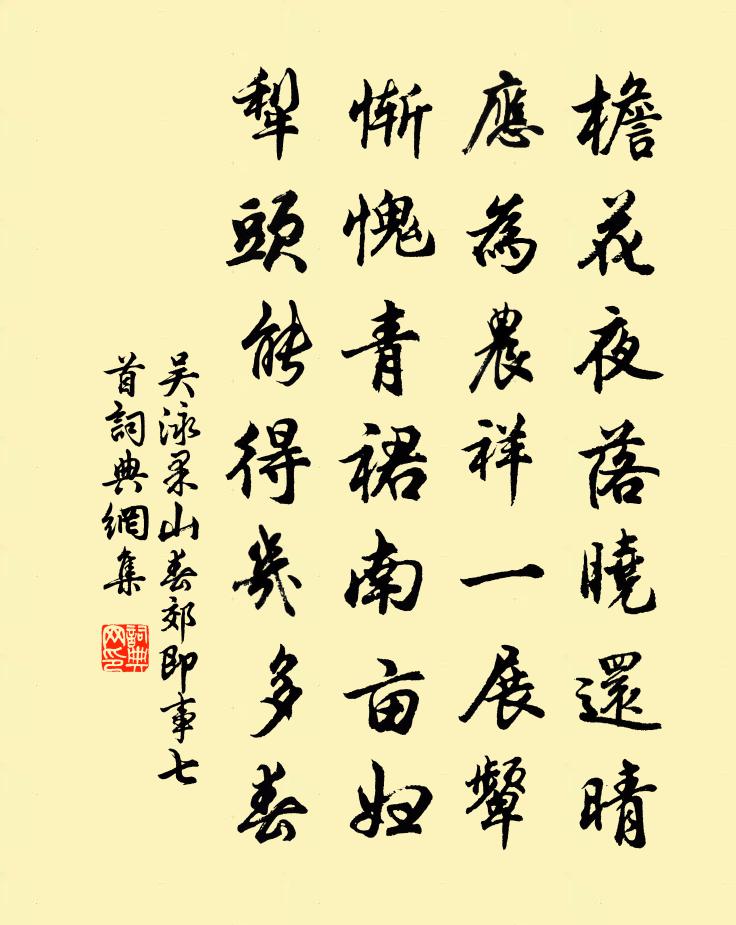 檐花夜落曉還晴
應為農祥一展顰
慚愧青裙南亩婦
犁頭能得幾多春
吴泳果山春郊即事七
首詞典網集
詞典网印